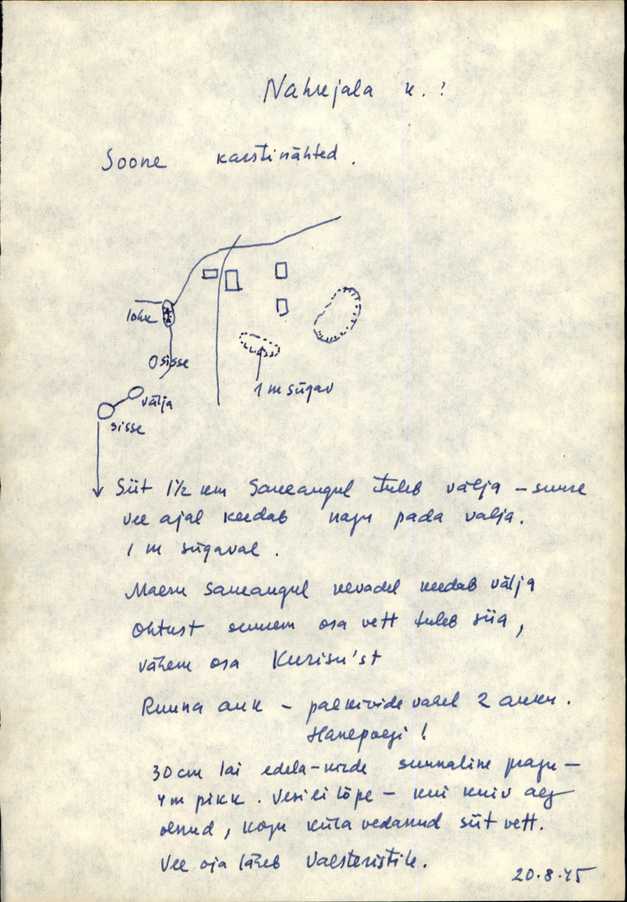 Nahkjala k. ?
Soone karstinähted.
lohk
sisse
välja
sisse
1 m sügav
Siit 1½ km Saueaugul tuleb välja – suure
vee ajal keedab nagu pada välja.
1 m sügaval.
Maeru Saueaugul kevadel keedab välja
Ohtust suurem osa vett tuleb siia,
vähem osa Kurisu'st
Ruuna auk – paekivide vahel 2 auku.
Hanepoegi!
30 cm lai edela-kirde suunaline pragu –
4 m pikk. Vesi ei lõpe – kui kuiv aeg
olnud, kogu küla vedanud siit vett.
Vee oja läheb
20.8.75